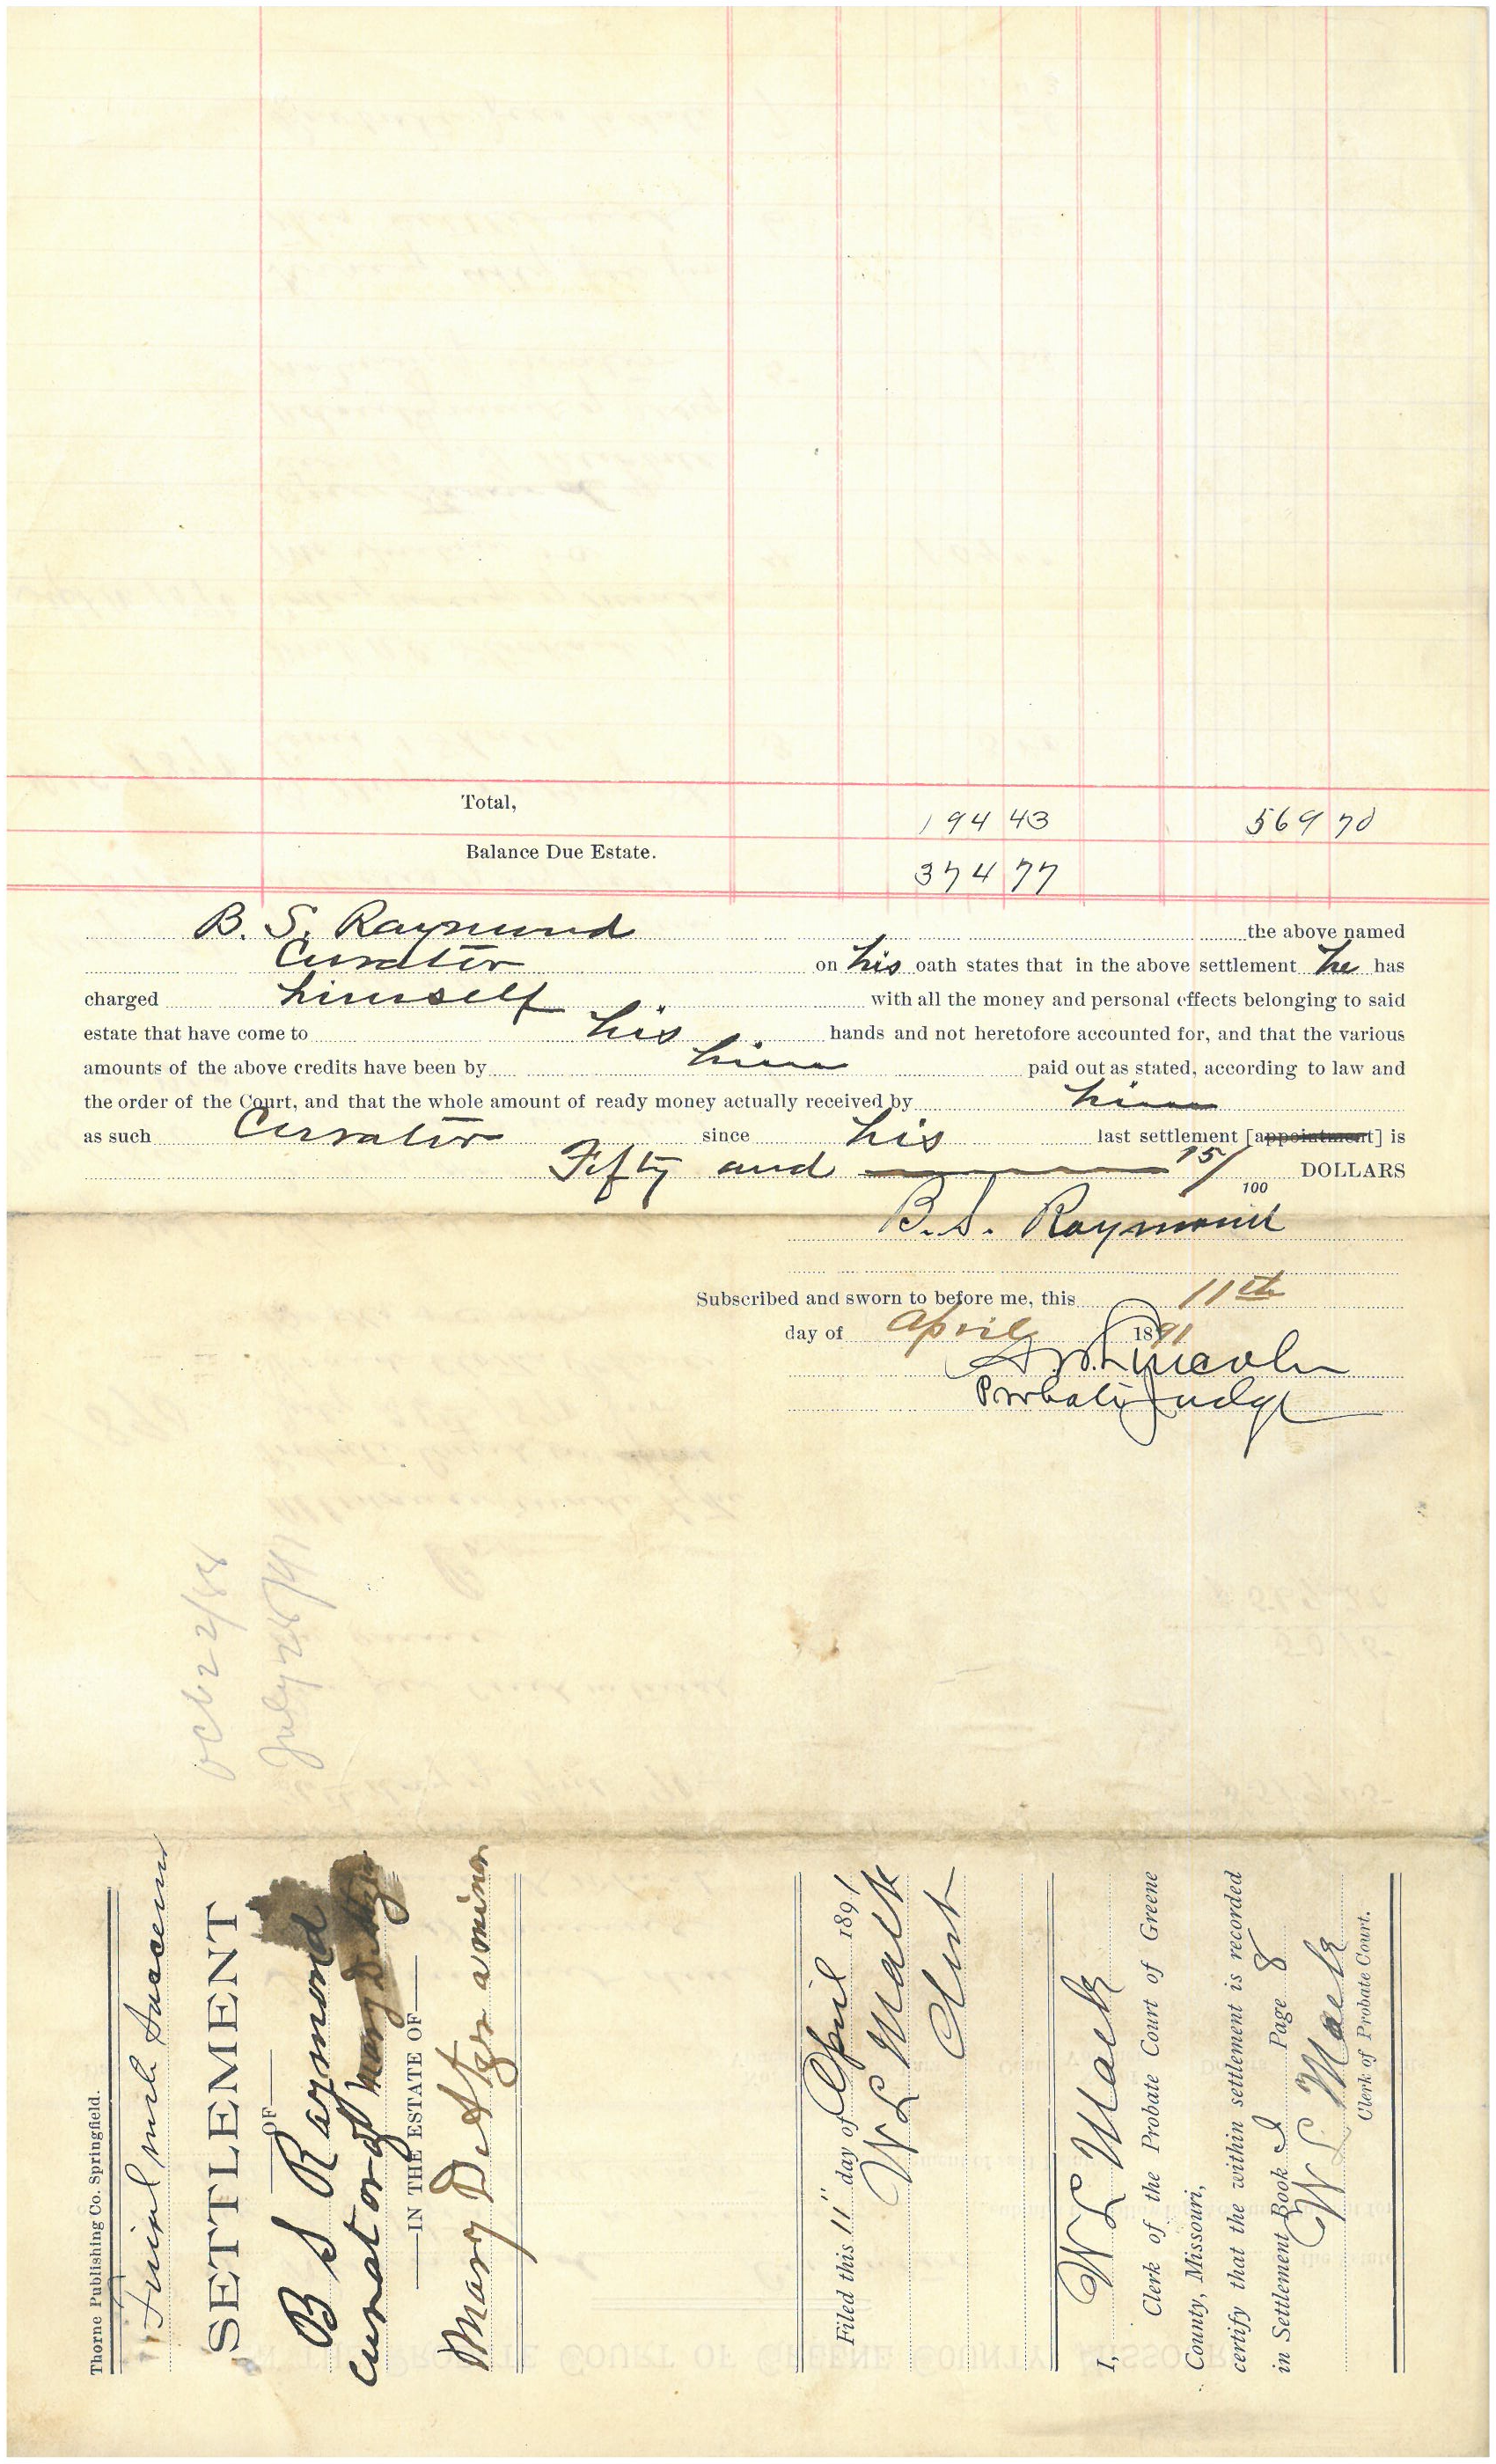 Total, 194 43 569 70
Balance Due Estate. 374 77
B. S. Raymond the above named
Curator on his oath states that in the above settlement he has
charged himself with all the money and personal effects belonging to said
estate that have come to his hands and not heretofore accounted for, and that the various
amounts of the above credits have been by him paid out as stated, according to law and
the order of the Court, and that the whole amount of ready money actually received by him
as such Curator since his last settlement [appointment] is
Fifty and 15/100 DOLLARS
B. S. Raymond
Subscribed and sworn to before me, this 11th
day of April 1891
Lincoln
Probate Judge
Oct 22/88
July 28/91
Thorne Publishing Co. Springfield.
Final with
SETTLEMENT
OF
B S Raymond
Curator of Mary
IN THE ESTATE OF
Mary a minor
Filed this 11" day of April 1891
W L Mack
Clerk
I, W L Mack
Clerk of the Probate Court of Greene
County, Missouri,
certify that the within settlement is recorded
in Settlement Book I Page 8
W L Mack
Clerk of Probate Court.